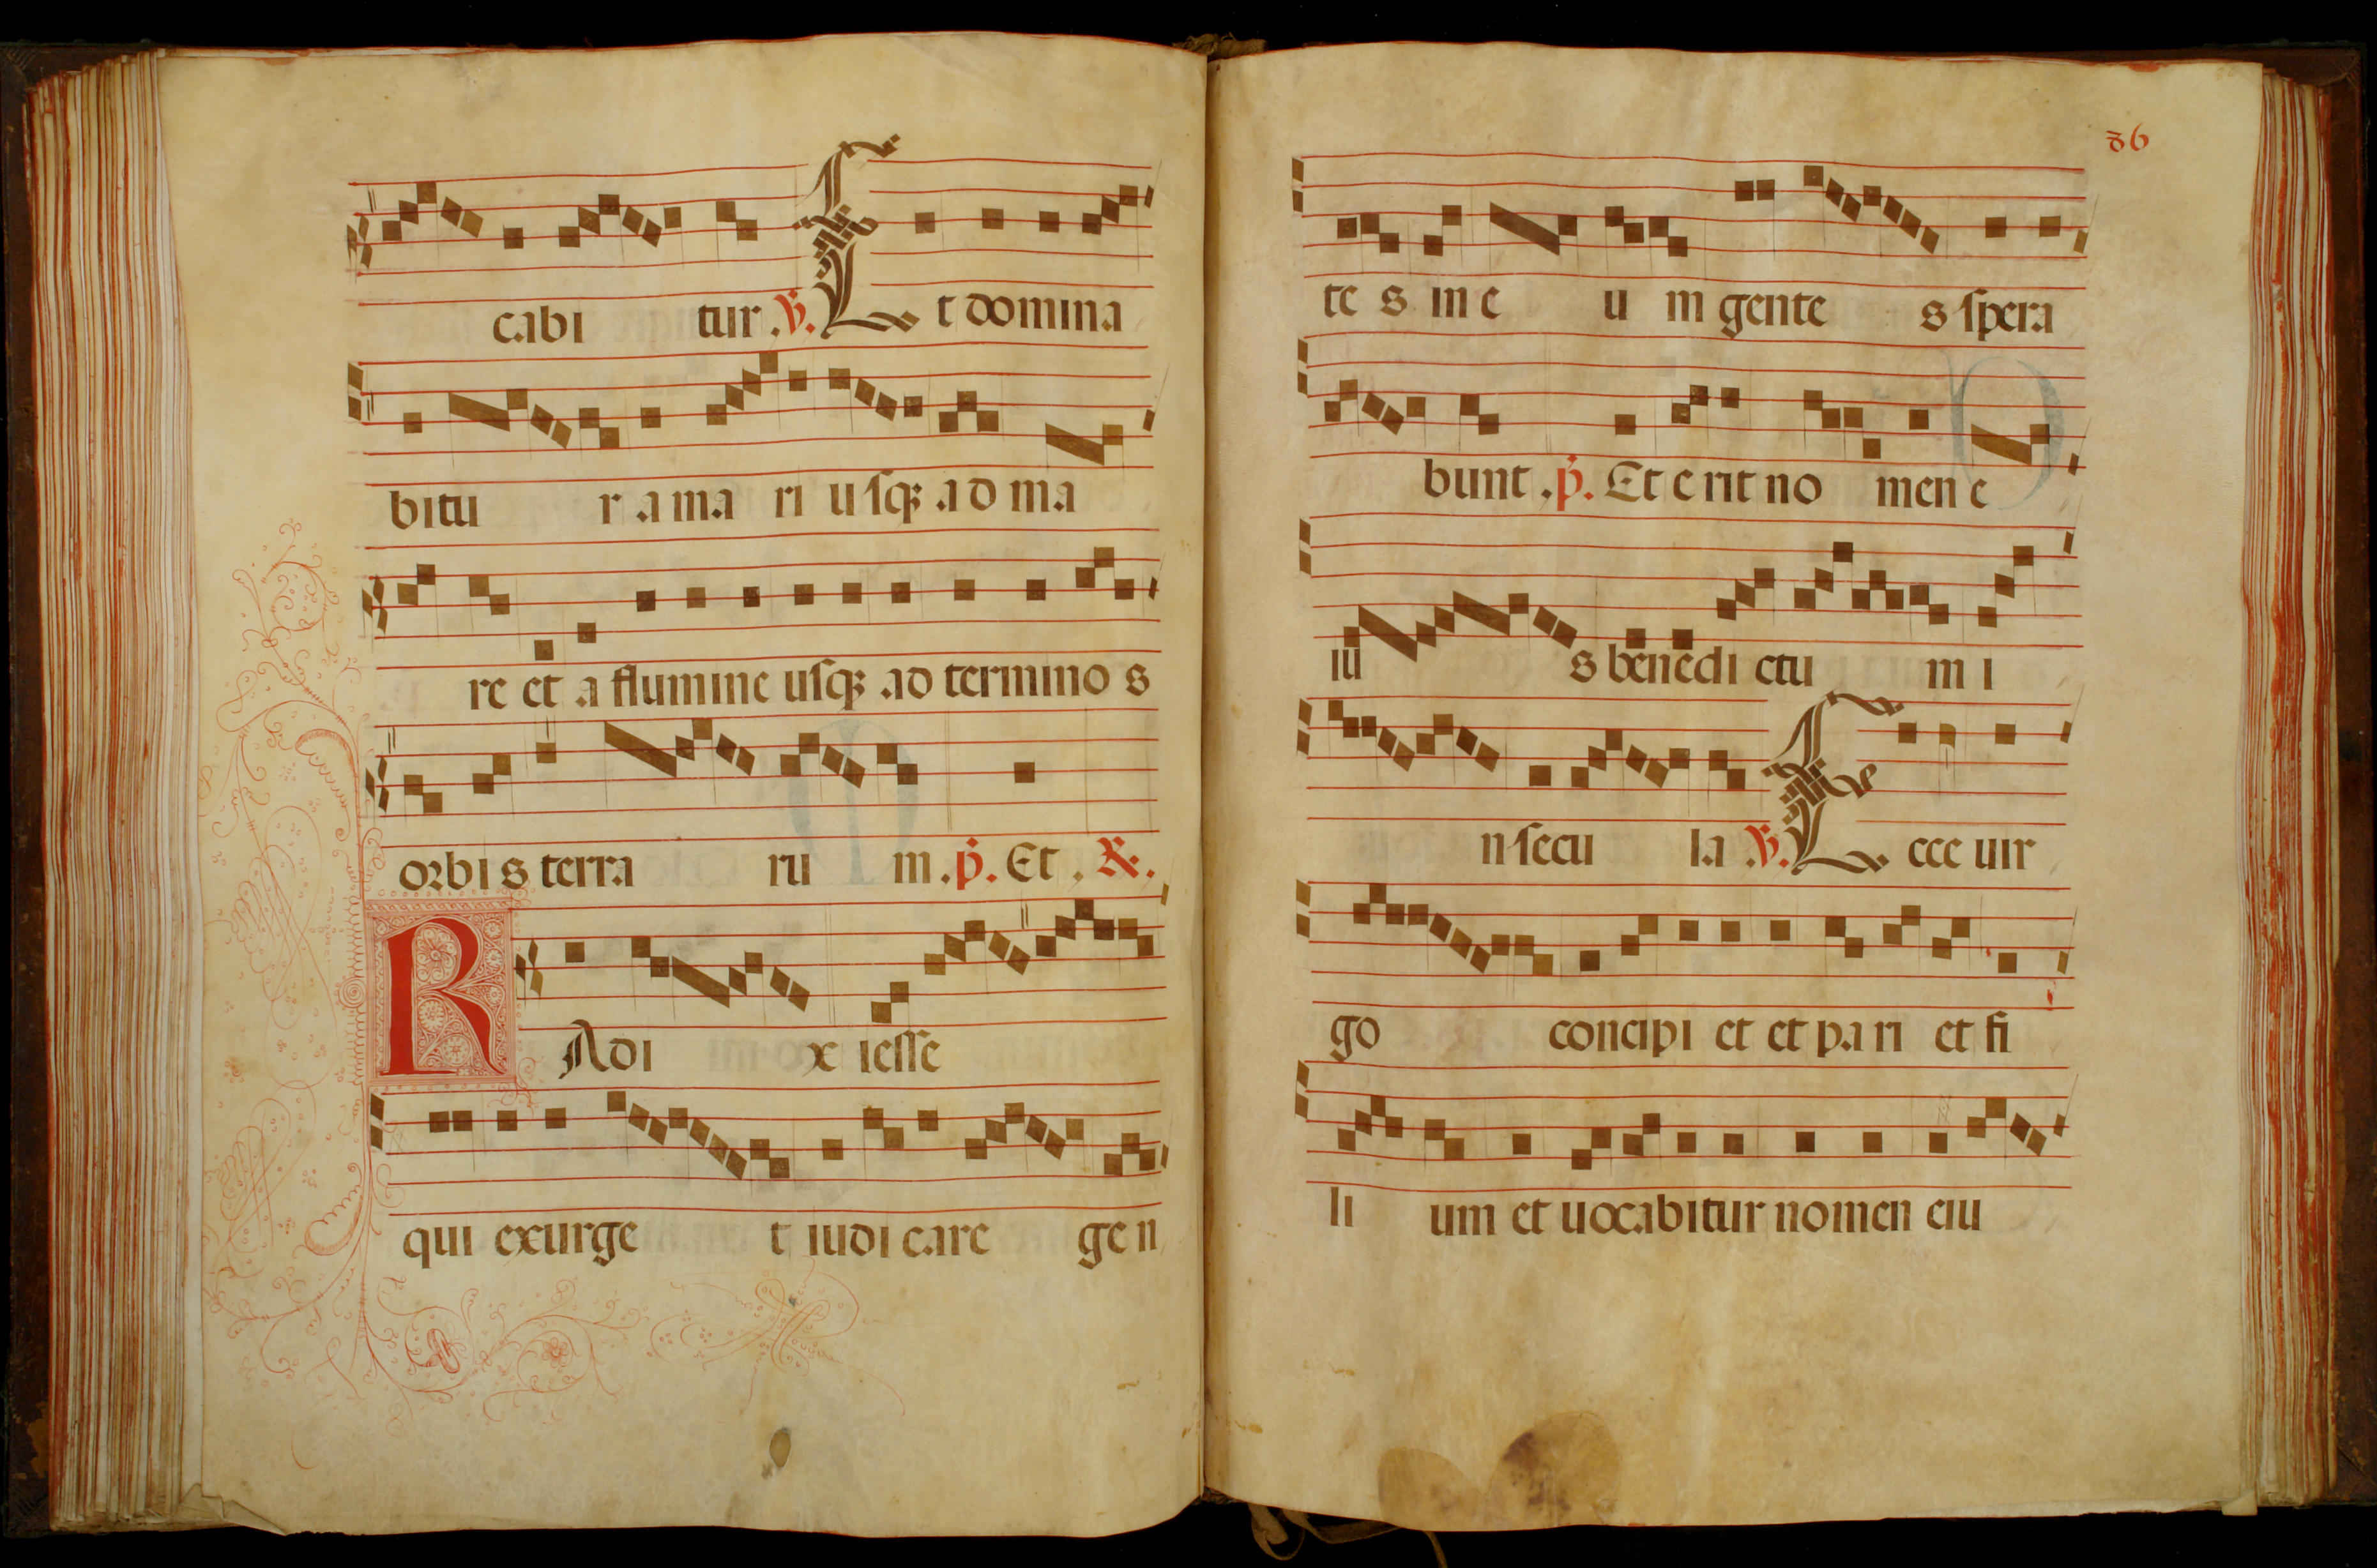 cabi tur .℣. Et domina
bitu r a ma ri uſqꝫ ad ma
re et a flumine uſqꝫ ad termino s
orbi s terra ru m . p̄. Et . ℟.
RAdi x ieſſe
qui exurge t iudi care ge n
86
te s in e u m gente s ſpera
bunt . p̄. Et e rit no men e
iu s benedi ctu m i
n ſecu la .℣. Ecce uir
go concipi et et pa ri et fi
li um et uocabitur nomen eiu